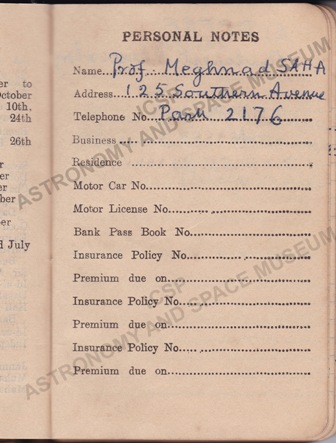 er to
October
10th.
24th
26th
d July
PERSONAL NOTES
Name Prof Meghnad SAHA
Address 125 Southern Avenue
Telephone No. Park 2176
Business
Residence
Motor Car No.
Motor License No.
Bank Pass Book No.
Insurance Policy No.
Premium due on
Insurance Policy No.
Premium due on
Insurance Policy No.
Premium due on
ICSP
ASTRONOMY AND SPACE MUSEUM
ICSP
ASTRONOMY AND SPACE MUSEUM